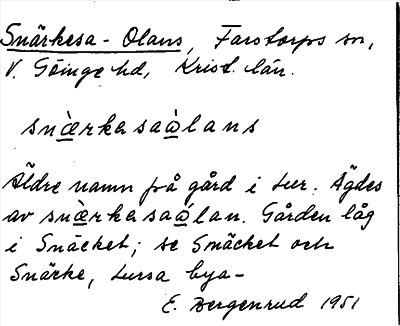 Snärkesa-Olans, Farstorps sn,
V. Göinge hd, Krist. län.
snæ̀rkasaɷ̀lans
Äldre namn på gård i Lur. Ägdes
av snæ̀rkasaɷ́lan. Gården låg
i Snäcket; se Snäcket och
Snärke, Lursa bya-
E. Bergenrud 1951